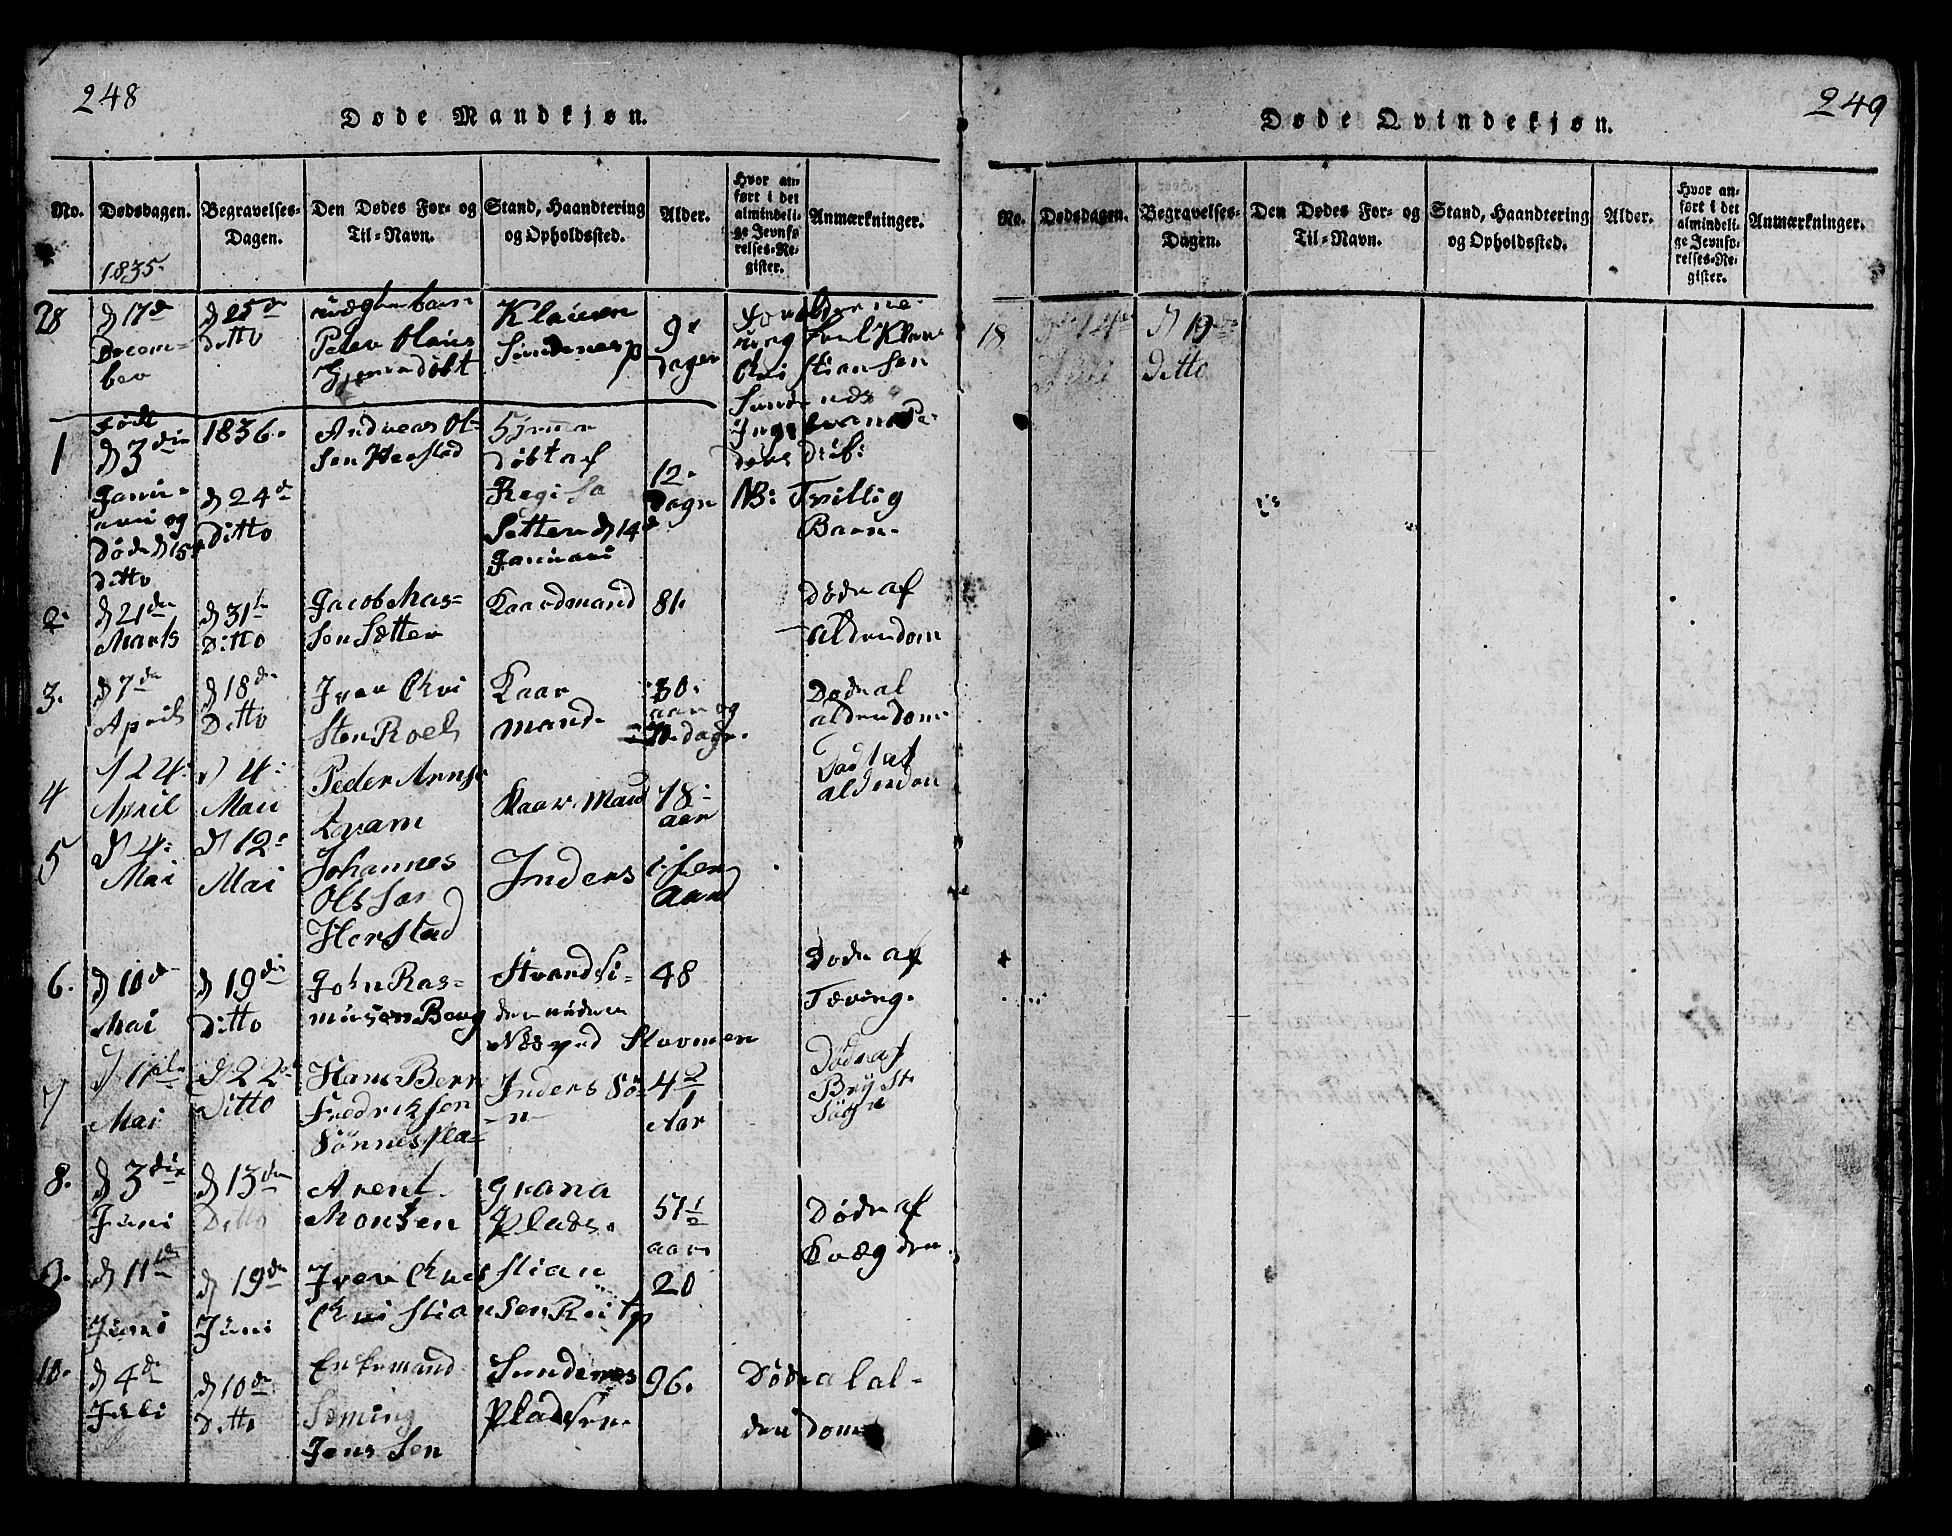 248
Døde Mandkjøn.
No.
Dødsdagen.
Begravelses-
Dagen.
Den Dødes For- og
Til-Navn.
Stand, Haandtering
og Opholdssted.
Alder.
Hvor an-
ført i det
almindeli-
ge Jevnfø-
relses-Re-
gister.
Anmærkninger.
1835.
28
d 17de
Decem-
ber
d 25de
ditto
Peder Hans
Klausen
Sundenes p
9e
dager
Forældrene
Christiansen
Sundenes
1
Født
d 3die
Janu-
ari og
Døde d 15de
ditto
1836.
d 24de
Ditto
Andreas Ol-
sen Herstad
Hjemme
døbt af
Setter d 14de
Januari
12.
Dage
NB: Tvillig
Barn.
2.
d 21de
Marts
d 31te
Ditto
Jacob Mas-
sen Sætter
Kaardmand
81.
Døde af
alderdom
3.
d 7de
April
d 18de
Ditto
Iver Chri
sten Roel
Kaar
mand.
80.
aar og
dage.
Døde al
alderdom
4
d 24:
April
d 4:
Mai
Peder Arnse
Kvam
Kaar Mand
78:
aar
alderdom
5
d 4:
Mai
d 12:
Mai
Johannes
Olssøn
Herstad
Inders
Aar
6.
d 10de
Mai
d 19de
Ditto
John Ras-
musen Berg
Strandsi-
der under
Næsved Stormen
48
Døde af
Tæring.
7
d 11te
Mai
d 22de
Ditto
Hans Bern
Fredriksen
Sønnespla-
Inders Sø-
n
4½
Aar
Døde af
Bryst
Syge
8.
d 3die
Juni
d 13de
Ditto
Arent
Monsen
grana
Plads.
51½
aar
Døde af
Kvægden
9.
d 11te
Juni
d 19de
Juni
Iver Chrisstian
Christiansen Rei tp
20
10.
d 4de
Juli
d 10de
Ditto
Enkemand
Seming
Jenssen
Sundenes
Pladsen.
96.
Døde al al-
derdom
249
Døde Qvindekjøn.
No.
Dødsdagen.
Begravelses-
Dagen.
Den Dødes For- og
Til-Navn.
Stand, Haandtering
og Opholdssted.
Alder.
Hvor an-
ført i det
almindeli-
ge Jevnfø-
relses-Re-
gister.
Anmærkninger.
18
14de
Juli
d 19de
Ditto